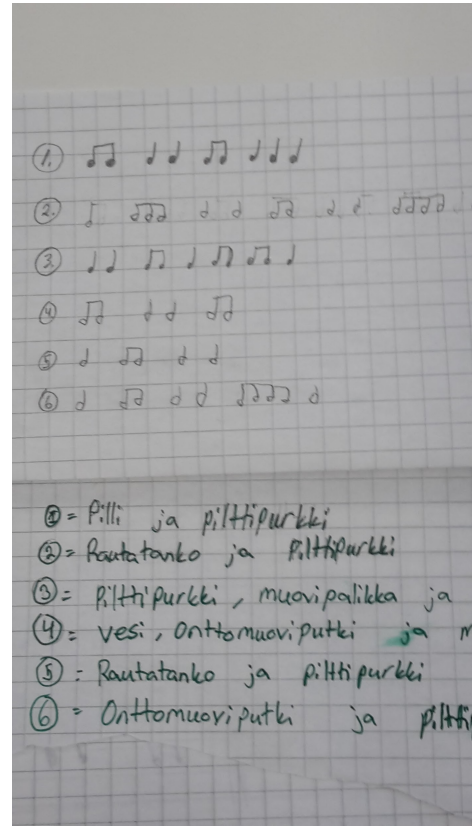 1. ♫ ♩ ♩ ♫ ♩ ♩ ♩
2. ♩ ♫♪ ♩ ♩ ♫ ♩ ♩ ♫♫
3. ♩ ♩ ♫ ♩ ♫ ♫ ♩
4 ♫ ♩ ♩ ♫
5 ♩ ♫ ♩ ♩
6 ♩ ♫ ♩ ♩ ♫♫ ♩
1 = Pilli ja pilttipurkki
2 = Rautatanko ja Pilttipurkki
3 = Pilttipurkki, muovipalikka ja
4 = vesi, Onttomuoviputki ja m
5 = Rautatanko ja pilttipurkki
6 = Onttomuoviputki ja piltti